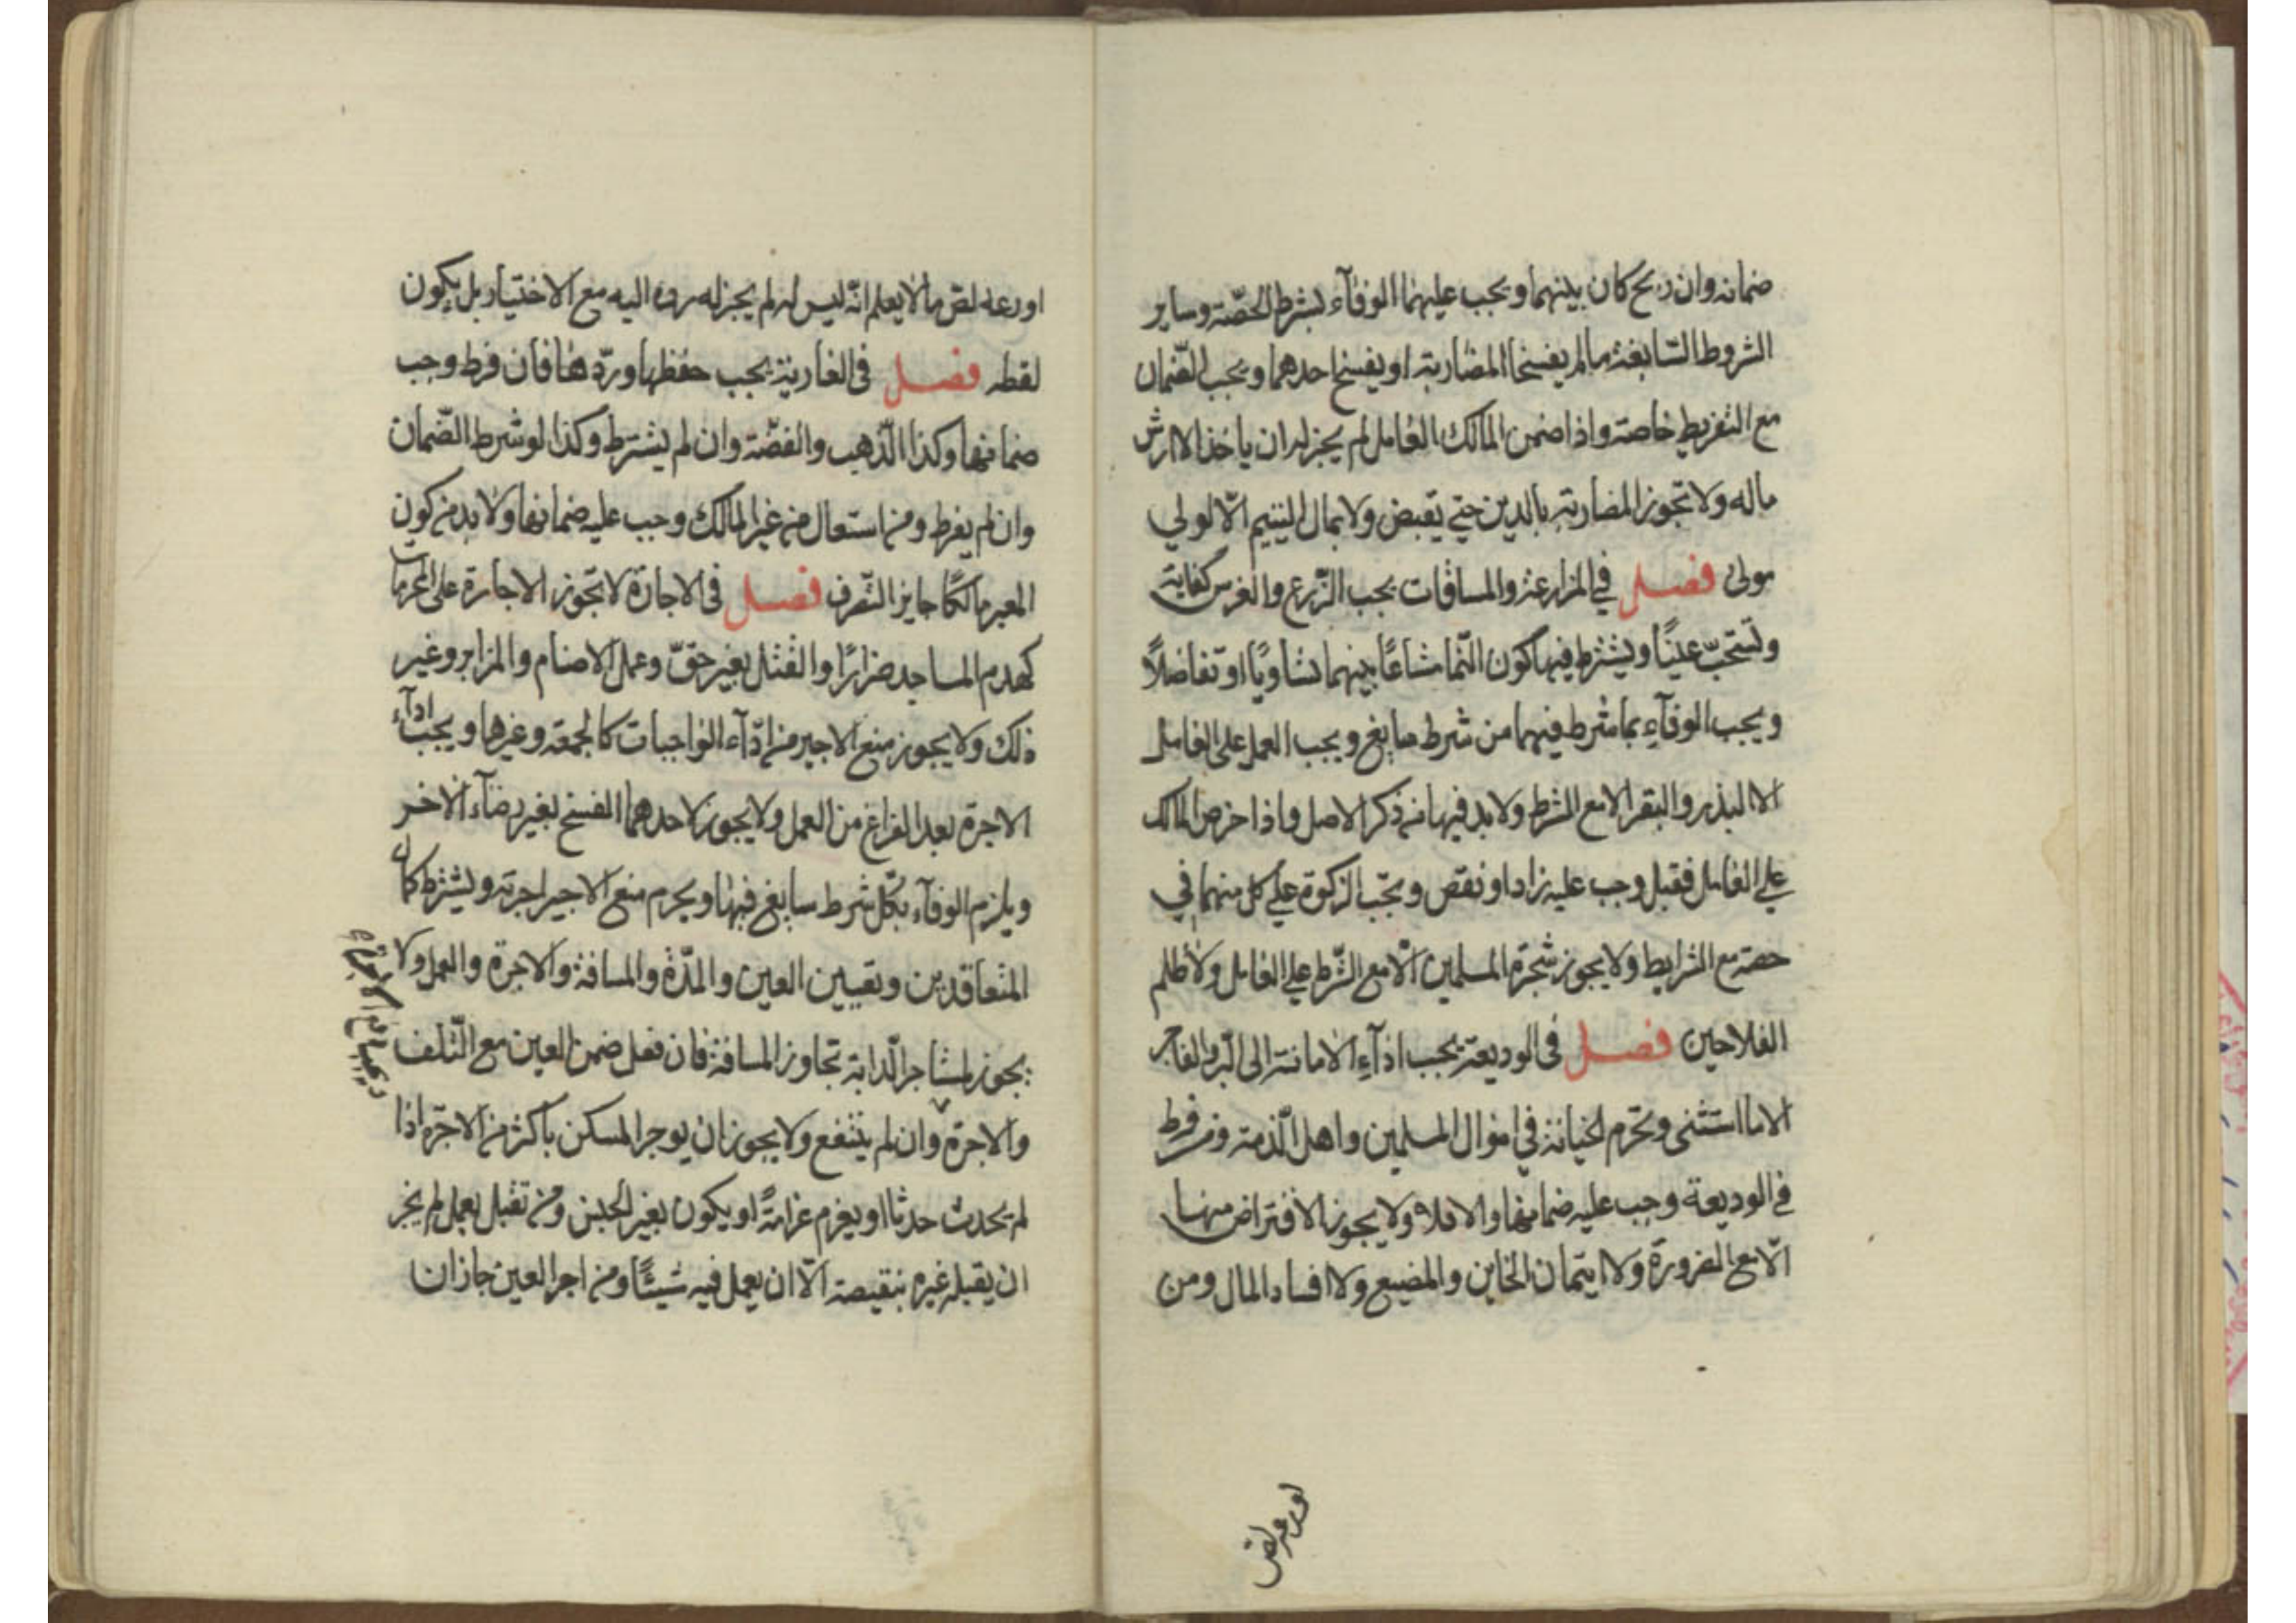 ضمانه وان ربح كان بينهما ويجب عليهما الوفآء بشرط الحصّة وساير
الشروط السّابغة ما لم يفسخا المضاربة او يفسخ احدهما ويجب الضّمان
مع التفريط خاصة واذا ضمن المالك العامل لم يجز له ان ياخذ الا راس
ماله ولا تجوز المضاربة بالدين حتي يقبض ولا بمال اليتيم الّا لولي
مولى فصل في المزارعة والمساقات يجب الزّرع والغرس كفاية
وتستحبّ عينًا ويشترط فيها كون النّما مشاعًا بينهما تساويًا او تفاضلًا
ويجب الوفآءِ بما شرط فيهما من شرط سايغ ويجب العمل على العامل
الا البذر والبقر الا مع الشرط ولا بد فيها من ذكر الاصل واذا خرص المالك
علي العامل فقبل وجب عليه زاد او نقص وتجّب الزكوة علي كل منهما في
حصته مع الشرايط ولا يجوز سُخرة المسلمين الّا مع الشّرط علي العامل ولا ظلم
الفلاحين فصل في الوديعة يجب ادآءِ الامانة الى البّر والفاجر
الا ما استثنى وتحّرم الخيانة في اموال المسلمين واهل الّذمة ومن فرط
في الوديعة وجب عليه ضمانها والا فلا ولا يجوز الاقتراض منها
الّا مع الضرورة ولا ايتمان الخاين والمضيع ولا افساد المال ومن
اودعه لصّ
اودعه لصّ مالا يعلم انّه ليس له لم يجز له رده اليه مع الاختيار بل يكون
لقطه فصل في العارية يجب حفظها وردّها فان فرط وجب
ضمانها وكذا الّذهب والفضّة وان لم يشترط وكذا لو شرط الضّمان
وان لم يفرط ومن استعار من غير المالك وجب عليه ضمانها ولا بد من كون
المعير مالكًا جايز التّصرف فصل في الاجارة لا تجوز الاجارة على المحرمات
كهدم المساجد ضرارًا والقتل بغير حقّ وعمل الاصنام والمزابر وغير
ذلك ولا يجوز منع الاجير من ادّاء الواجبات كالجمعة وغيرها ويجب ادآء
الاجرة بعد الفراغ من العمل ولا يجوز لاحدهما الفسخ بغير رضآء الاخر
ويلزم الوفآء بكّل شرط سايغ فيها ويحرم منع الاجير اجرته ويشترط كمال
المتعاقدين وتعيين العين والمدّة والمسافة والاجرة والعمل ولا
يجوز لمستاجر الّدابة تجاوز المسافة فان فعل ضمن العين مع التّلف
والاجرة وان لم ينتفع ولا يجوز ان يوجر المسكن باكثر من الاجّرة اذا
لم يحدث حدثا او يغرم غرامةً او يكون بغير الجنس ومن تقبل بعمل لم يجز
ان يقبله غيره بنقيصة الّا ان يعمل فيه شيئًا ومن اجر العين جاز ان